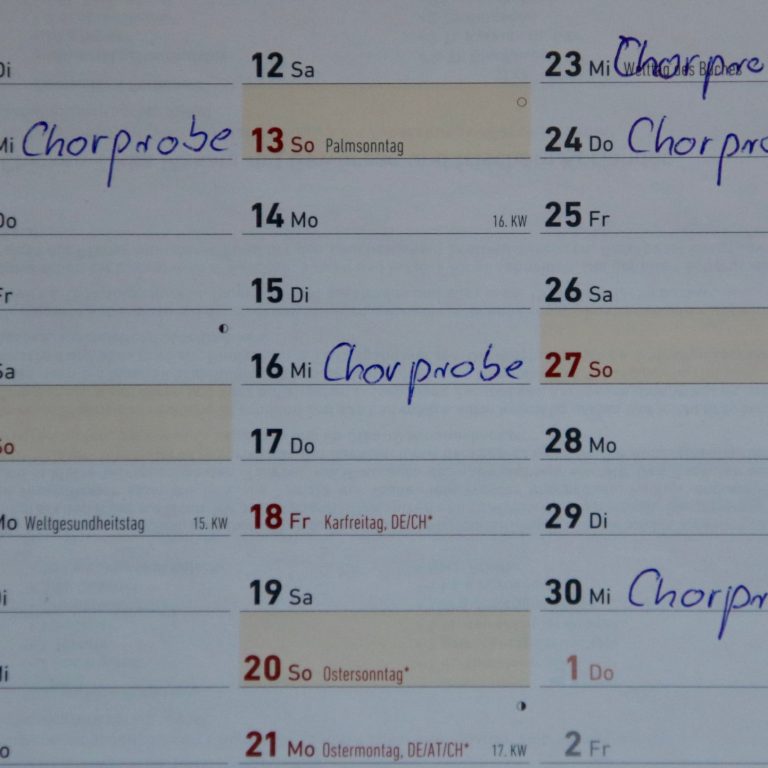 Di
Mi Chorprobe
Do
Fr
Sa
So
Mo Weltgesundheitstag 15. KW
Di
Mi
Do
12 Sa
13 So Palmsonntag
14 Mo 16. KW
15 Di
16 Mi Chorprobe
17 Do
18 Fr Karfreitag, DE/CH*
19 Sa
20 So Ostersonntag*
21 Mo Ostermontag, DE/AT/CH* 17. KW
23 Mi Welttag des Buches Chorpro
24 Do Chorpro
25 Fr
26 Sa
27 So
28 Mo
29 Di
30 Mi Chorpr
1 Do
2 Fr